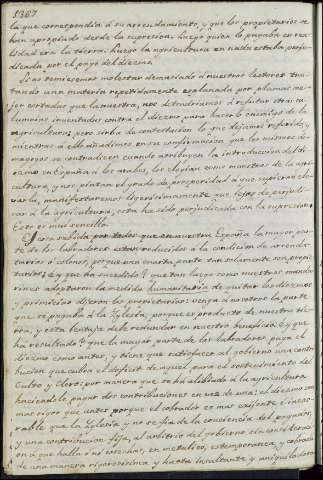 1367
la que correspondia á su arrendamiento, y que los propietarios se
han apropiado desde la supresion: luego quien lo pagaba en rea-
lidad era la tierra: luego la agricultura en nada estaba perju-
dicada por el pago del diezmo.
Si no temiesemos molestar demasiado á nuestros lectores tra-
tando una materia repetidamente esplanada por plumas me-
jor cortadas que la nuestra, nos detendriamos á refutar otras ca-
lumnias inventadas contra el diezmo para hacerlo enemigo de la
agricultura; pero sirva de contestacion lo que dejamos referido; y
mientras á ello añadimos en su confirmacion que los mismos
se contradicen cuando atribuyen la introduccion del di-
ezmo en España á los arabes, los elogian como maestros de la agri-
cultura, y nos pintan el grado de prosperidad á que supieron ele-
varla, manifestaremos ligerisimamente que lejos de perjudi-
car á la agricultura, esta ha sido perjudicada con la supresion.
Esto es mui sencillo.
Es cosa sabida por todos que en nuestra España la mayor par-
te de los labradores estan reducidos á la condicion de arrenda-
tarios ó colonos, porque una cuarta parte tan solamente son propie-
tarios; ¿y que ha sucedido? que tan luego como nuestros manda-
rines adoptaron la medida humanitaria de quitar los diezmos
y primicias dijeron los propietarios: venga á nosotros la parte
que se pagaba á la Iglesia, porque es producto de nuestra tie-
rra, y esta ventaja debe redundar en nuestro beneficio. ¿y que
ha resultado? que la mayor parte de los labradores paga el
diezmo como antes, y tiene que satisfacer al gobierno una contri-
bucion que cubra el deficit de aquel para el sostenimiento del
Culto y Clero; por manera que se ha aliviado á la agricultura
haciendole pagar dos contribuciones en vez de una: el diezmo con
mas rigor que antes porque el cobrador es mas exigente é inexo-
rable que la Iglesia y no se fia de la conciencia del pagador;
y una contribucion fija, al arbitrio del gobierno sin considerac-
on á que halla ó no cosechas, en metalico, estemporanea, y cobrada
de una manera rigorosisima y hasta insultante y aniquiladora